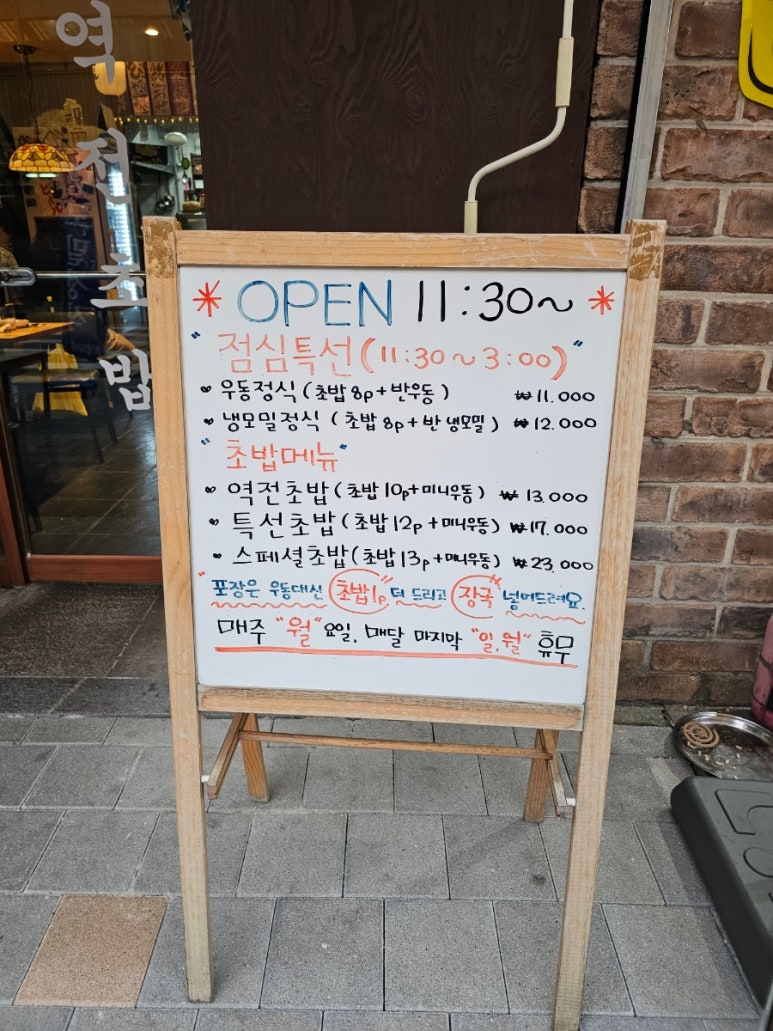 역전초밥
* OPEN 11:30~ *
"점심특선(11:30~3:00)"
♥ 우동정식 (초밥 8p + 반우동) ₩11.000
♥ 냉모밀정식 (초밥 8p + 반 냉모밀) ₩12.000
"초밥메뉴"
♥ 역전초밥 (초밥 10p + 미니우동) ₩13.000
♥ 특선초밥 (초밥 12p + 미니우동) ₩17.000
♥ 스페셜초밥 (초밥 13p + 미니우동) ₩23.000
"포장은 우동대신 초밥1p 더 드리고 장국 넣어드려요."
매주 "월"요일, 매달 마지막 "일,월" 휴무